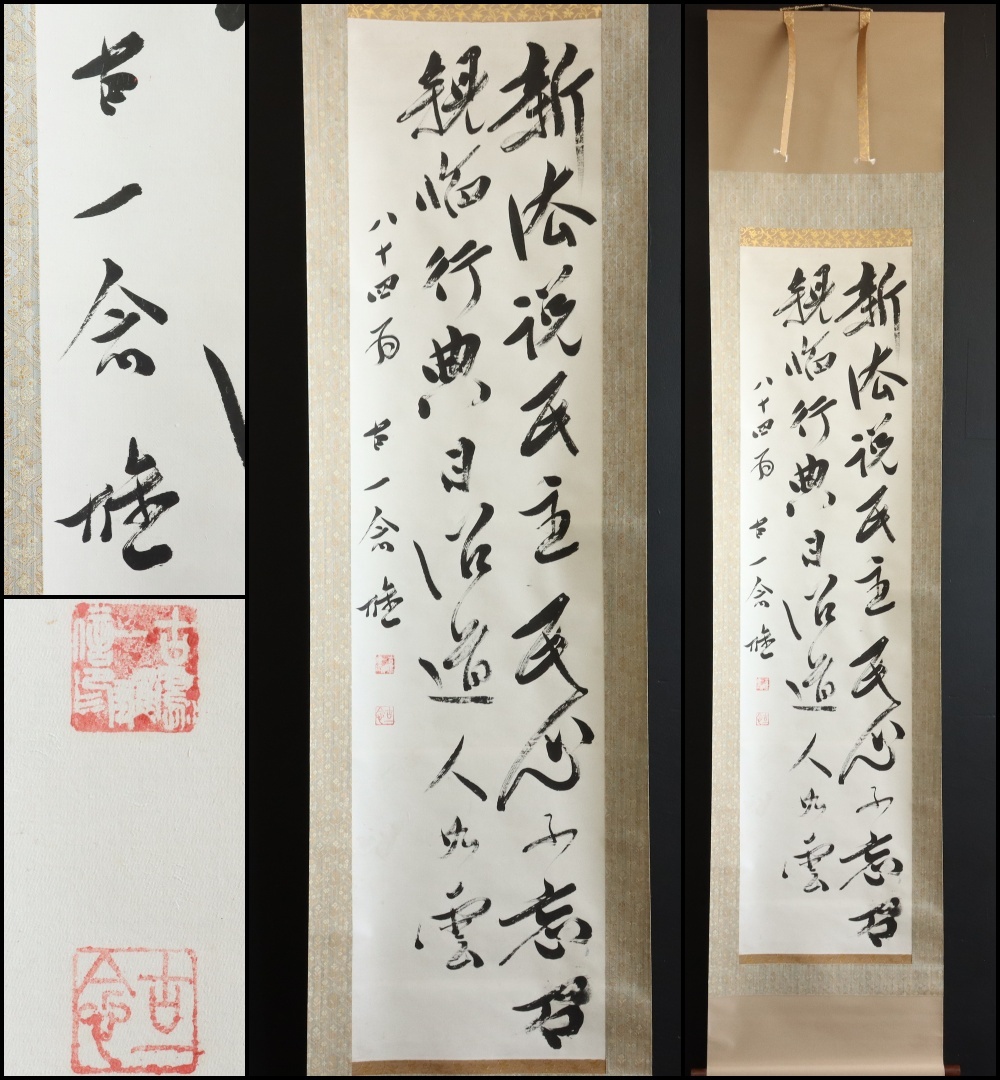 古一念雄
古一念
新法説民主民心不忘君
親臨行典日沿道人如雲
八十四翁 古一念雄
新法説民主民心不忘君
親臨行典日沿道人如雲
八十四翁 古一念雄